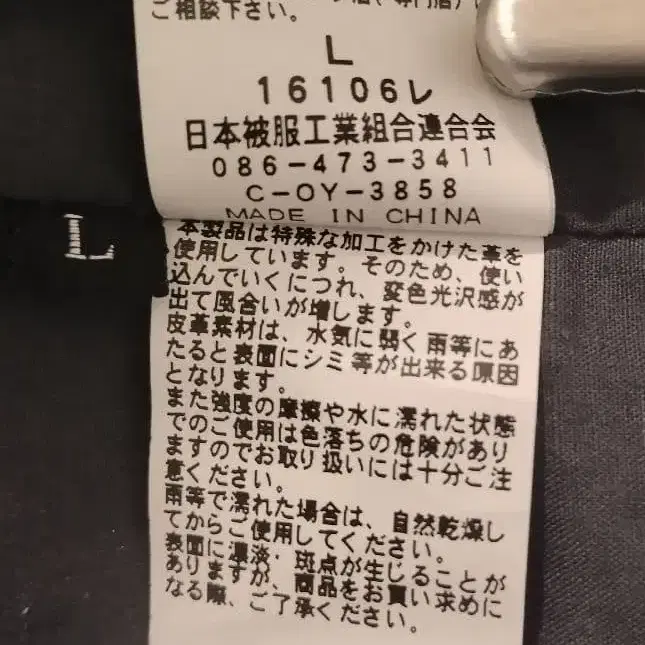 ご相談下さい。
L
16106レ
日本被服工業組合連合会
086-473-3411
C-OY-3858
MADE IN CHINA
L
本製品は特殊な加工をかけた革を
使用しています。そのため、使い
込んでいくにつれ、変色光沢感が
出て風合いが増します。
皮革素材は、水気に弱く雨等にあ
たると表面にシミ等が出来る原因
となります。
また強度の摩擦や水に濡れた状態
でのご使用は色落ちの危険があり
ますのでお取り扱いには十分ご注
意ください。
雨等で濡れた場合は、自然乾燥し
てからご使用してください。
表面に濃淡・斑点が生じることが
ありますが、商品をお買い求めに
なる際、ご了承ください。